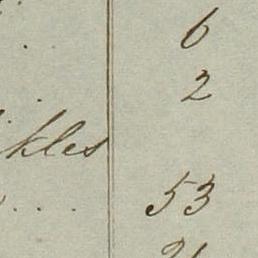 . 6
. 2
kles
. . . 53